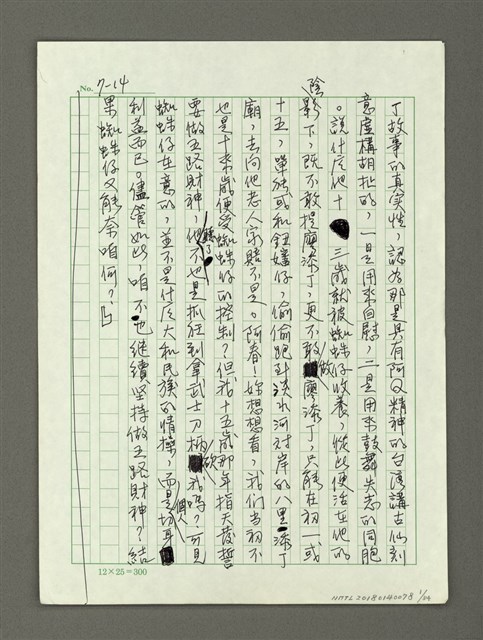 No. 7-14
了故事的真實性，認為那是具有阿Q精神的台灣講古仙刻
意虛構胡扯的，一是用來自慰，二是用來鼓舞失志的同胞
。說什庅他十三歲就被蜘蛛仔收養，從此便活在他的
陰影下，既不敢提廖添丁，更不敢做廖添丁，只能在初一或
十五，單獨或和鈕嬸仔，偷偷跑到淡水河對岸的八里添丁
廟，去向他老人家賠不是。阿春！妳想想看，我們當初不
也是十來歲便受蜘蛛仔的控制？但我十五歲那年指天發誓
要做五路財神，他聽了不也是抓狂到拿武士刀柄砍我嗎？可見
蜘蛛仔在意的，並不是什庅大和民族的情操，而是切身個人
利益而已。儘管如此，咱不也繼續坚持做五路財神？結
果蜘蛛仔又能奈咱何？」
12×25=300
NMTL20180140078 1/24